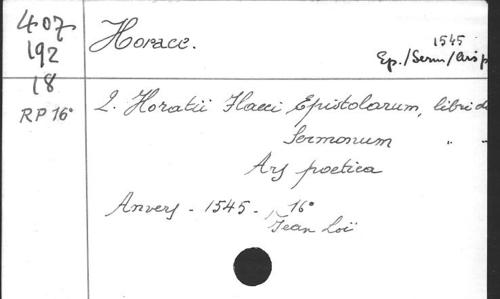 407
192
18
RP 16°
Horace.
1545
Ep./Serm/Arsp
Q. Horatii Flacci Epistolarum, libri d
Sermonum " "
Ars poetica
Anvers - 1545 - 16°
Jean Loï